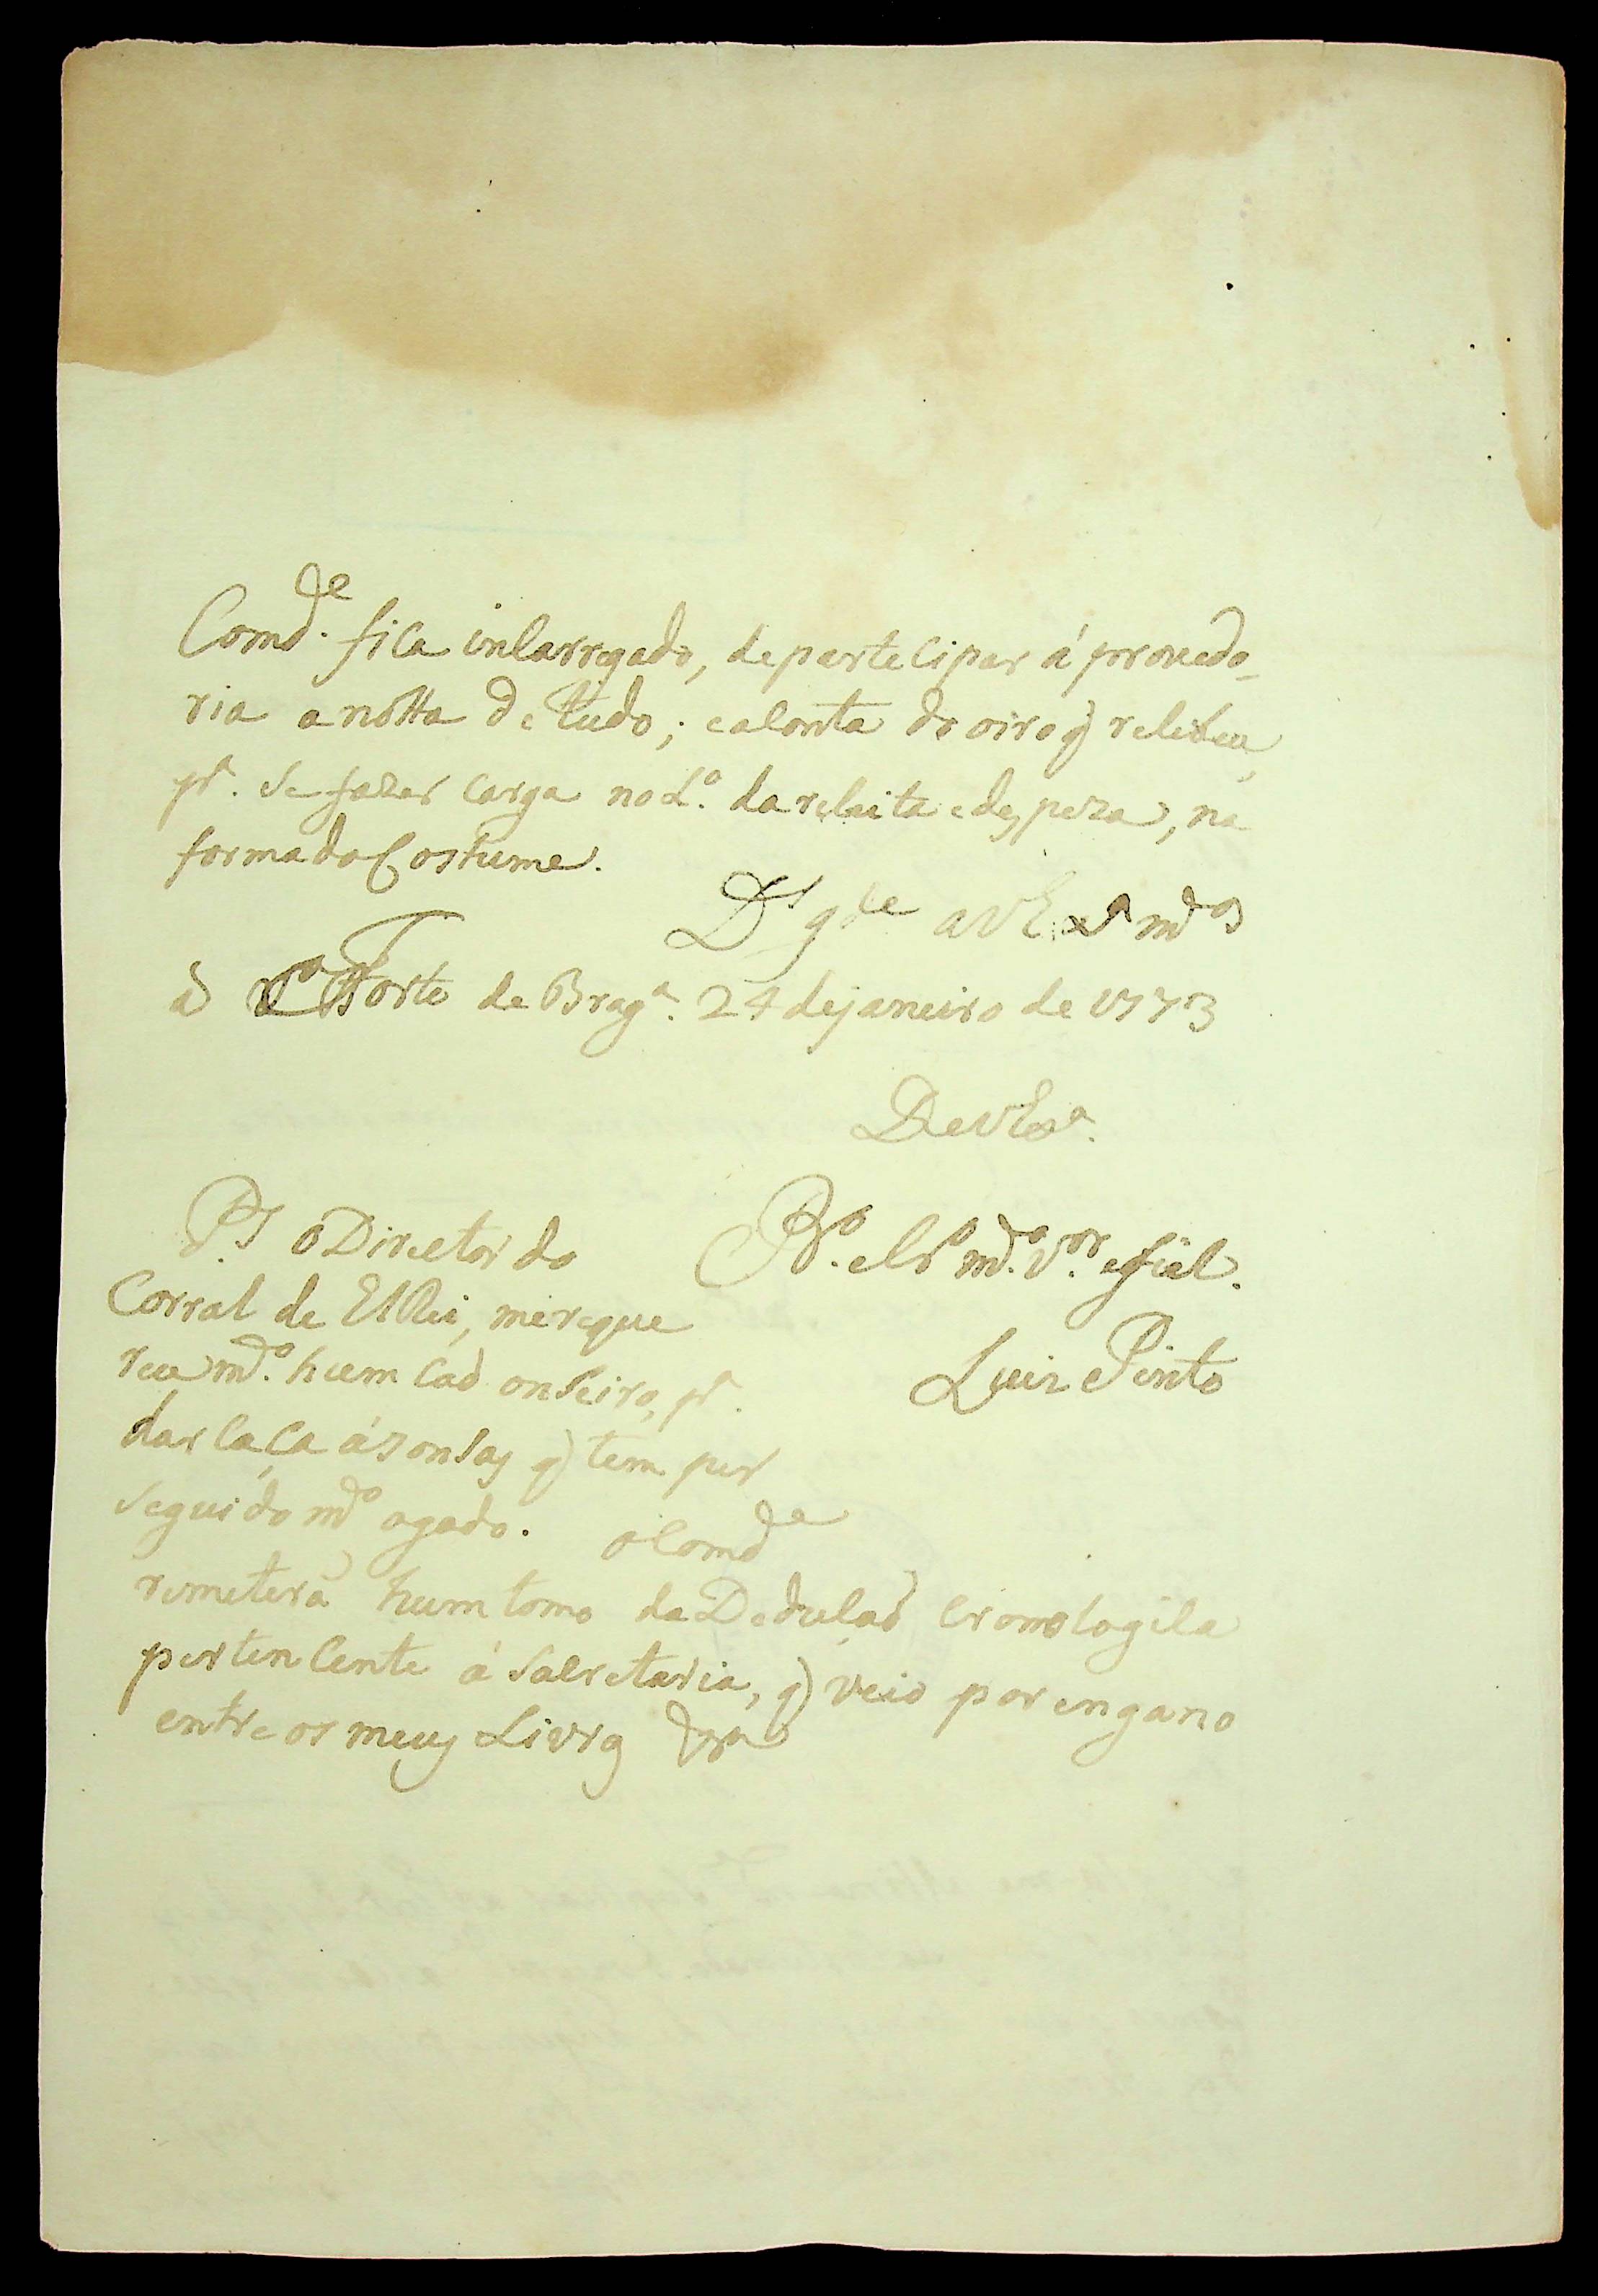 Comd.e fica incarregado, departecipar á provedo-
ria a notta de tudo; e a conta do oiro q̃ recebeu,
pa. se fazer carga no Lo. da receita e despeza, na
forma do Costume.
Ds gde a V Exa mos
as Forte de Braga. 24 de janeiro de 1773
De V Exa.
PS o Diretor do
Corral de ElRei, me reque
reu mdo. hum cão onseiro, pa.
dar caça ás onsas q̃ tem per
seguido mto o gado. o Comde
remeterá hum tomo da Dedução cronologica
pertencente á Sacretaria, q̃ veio por engano
entre os meus Livros
mo. vor. e fiel.
Luiz Pinto